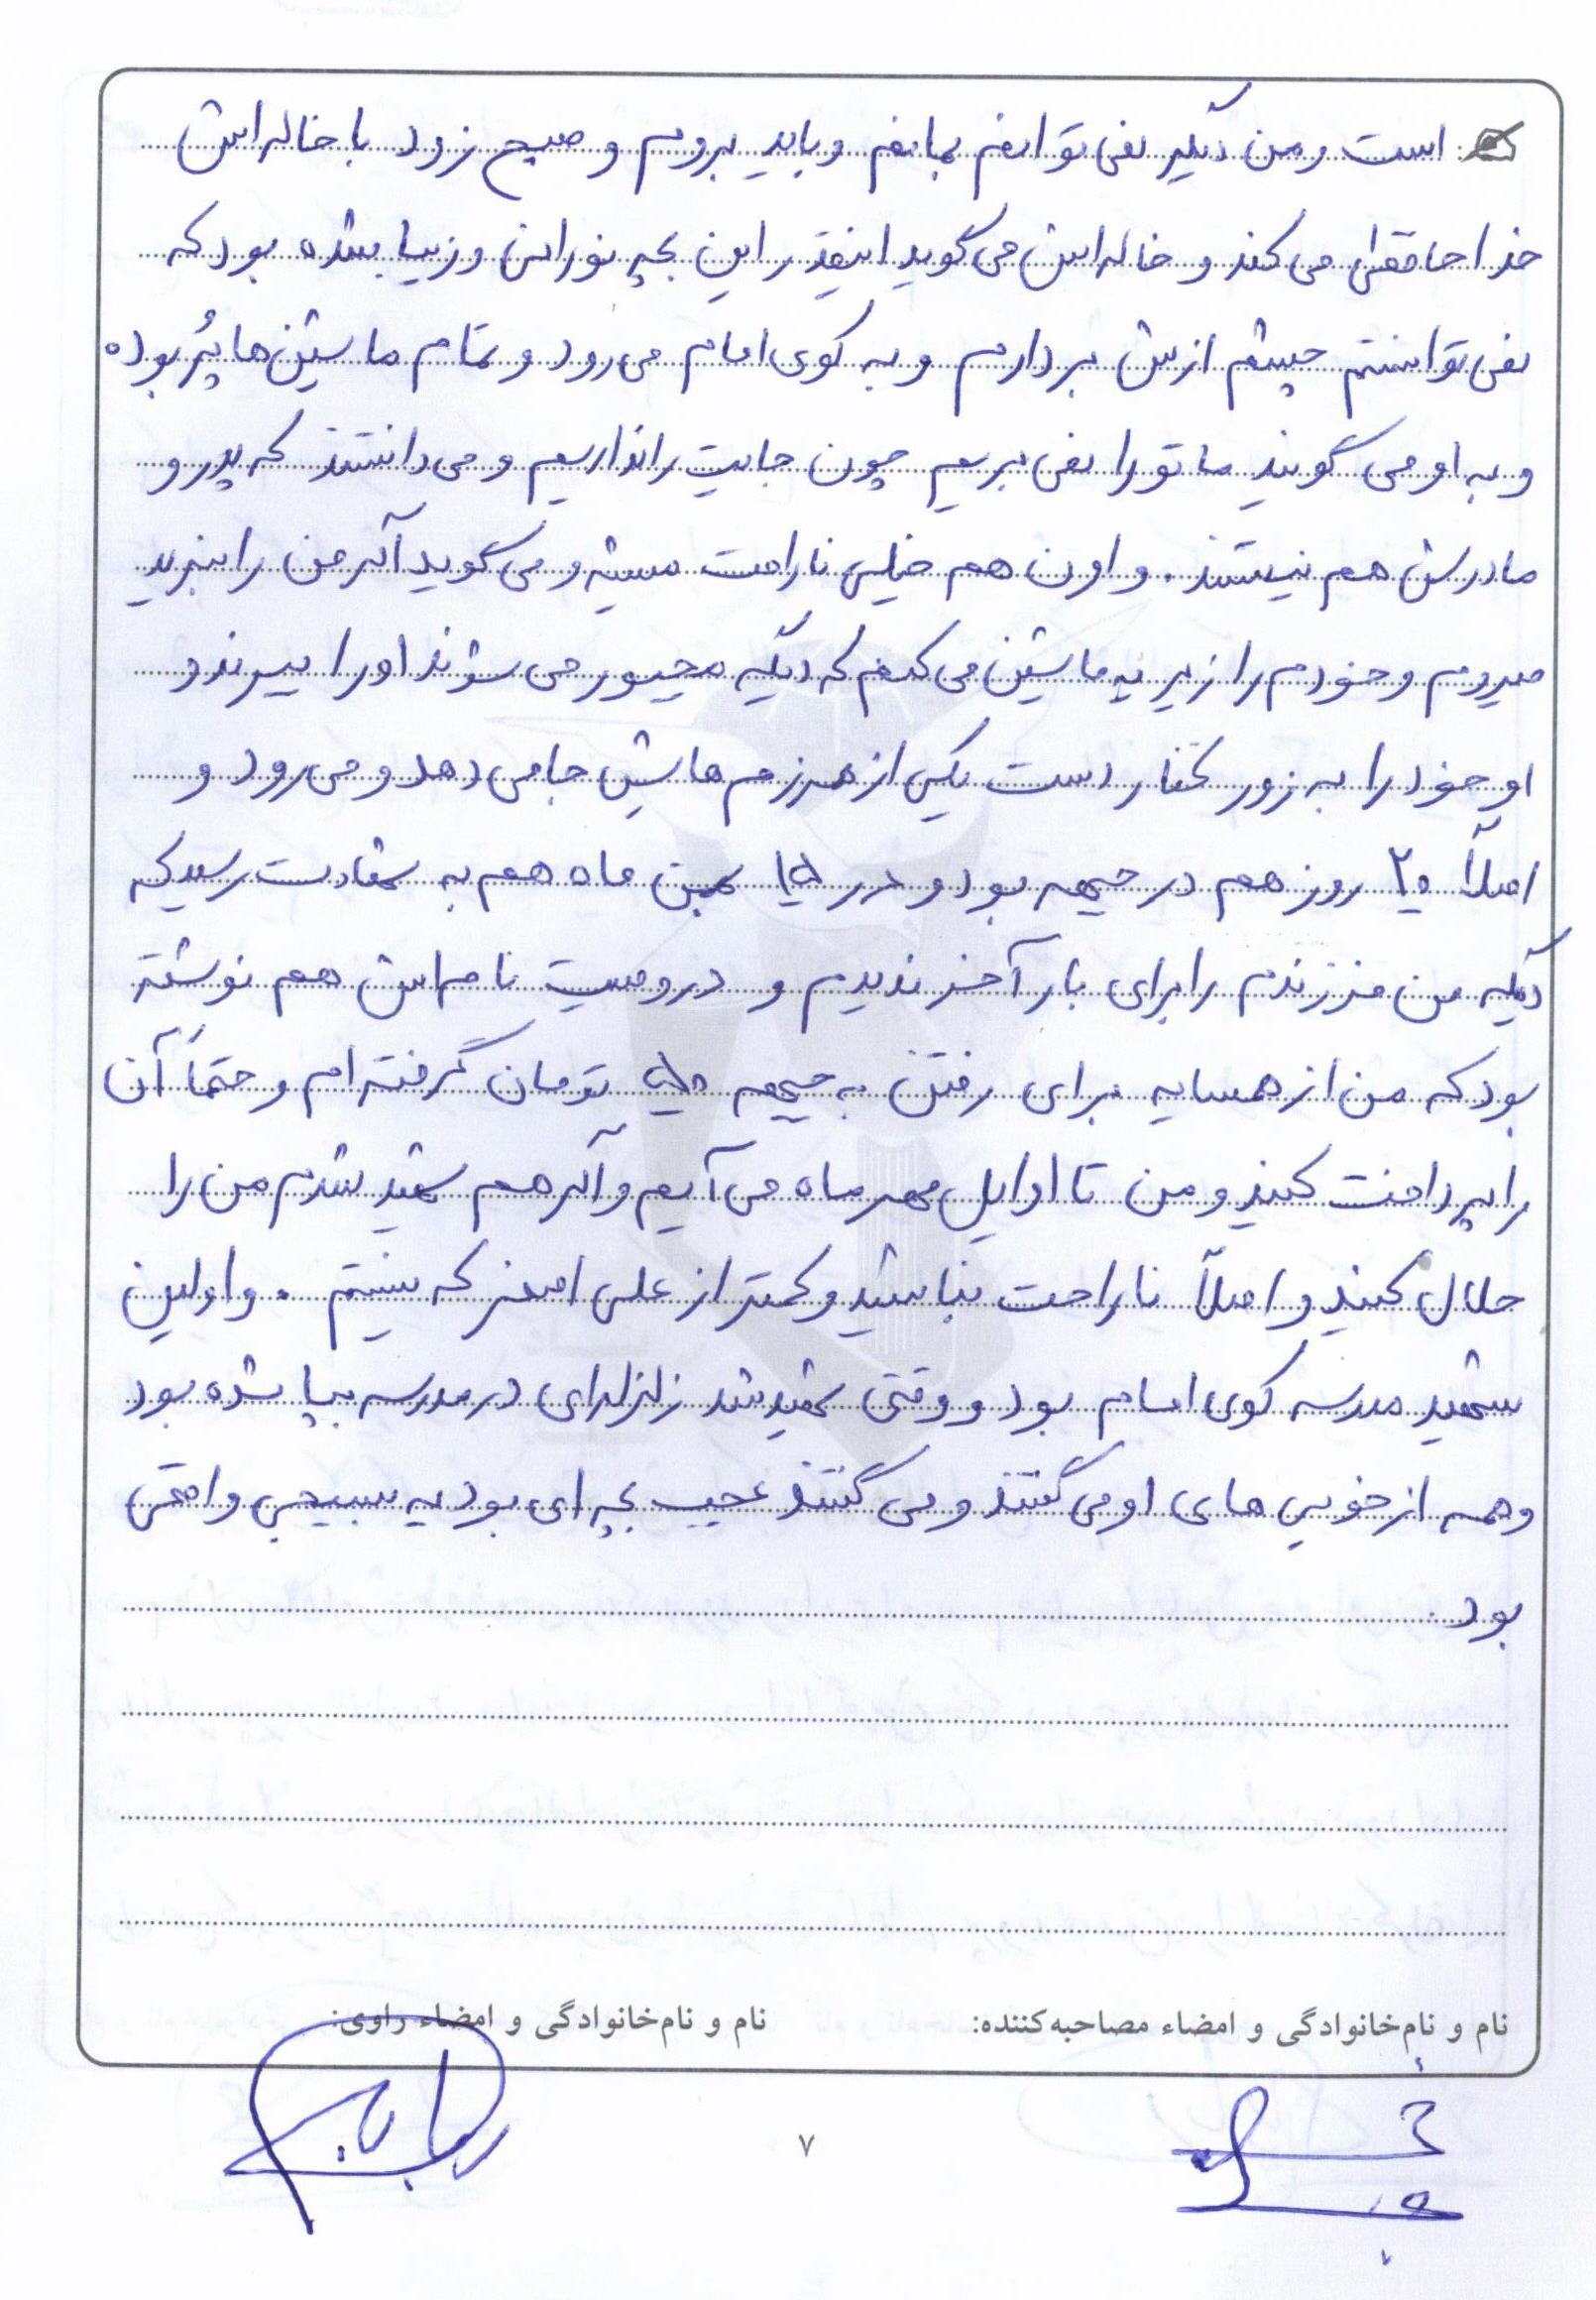 است و من دیگر نمی توانم بمانم و باید بروم و صبح زود با خاله اش
خداحافظی می کند و خاله اش می گوید اینقدر این بچه نورانی و زیبا شده بود که
نمی توانستم چشم ازش بردارم و به کوی امام می رود و تمام ماشین ها پُر بوده
و به او می گویند ما تو را نمی بریم چون جایت را نداریم و می دانستند که پدر و
مادرش هم نیستند. و اون هم خیلی ناراحت میشه و می گوید اگر من را نبرید
میروم و خودم را زیر یه ماشین می کنم که دیگه مجبور می شوند او را ببرند و
او خود را به زور کنار دست یکی از همرزم هایش جا می دهد و می رود و
اصلاً ۲۰ روز هم در جبهه بود و در ۱۵ همین ماه هم به شهادت رسید که
دیگه من فرزندم را برای بار آخر ندیدم و در وصیت نامه اش هم نوشته
بود که من از همسایه برای رفتن به جبهه ۵۰ تومان گرفته ام و حتماً آن
را پرداخت کنید و من تا اوایل مهر ماه می آیم و اگر هم شهید شدم من را
حلال کنید و اصلاً ناراحت نباشید و کمتر از علی اصغر که نیستم. و اولین
شهید مدرسه کوی امام بود و وقتی شهید شد زلزله ای در مدرسه بپا شده بود
و همه از خوبی های او می گفتند و می گفتند عجیب بچه ای بود یه بسیجی واقعی
بود
نام و نام‌خانوادگی و امضاء مصاحبه‌کننده: نام و نام‌خانوادگی و امضاء راوی:
۷